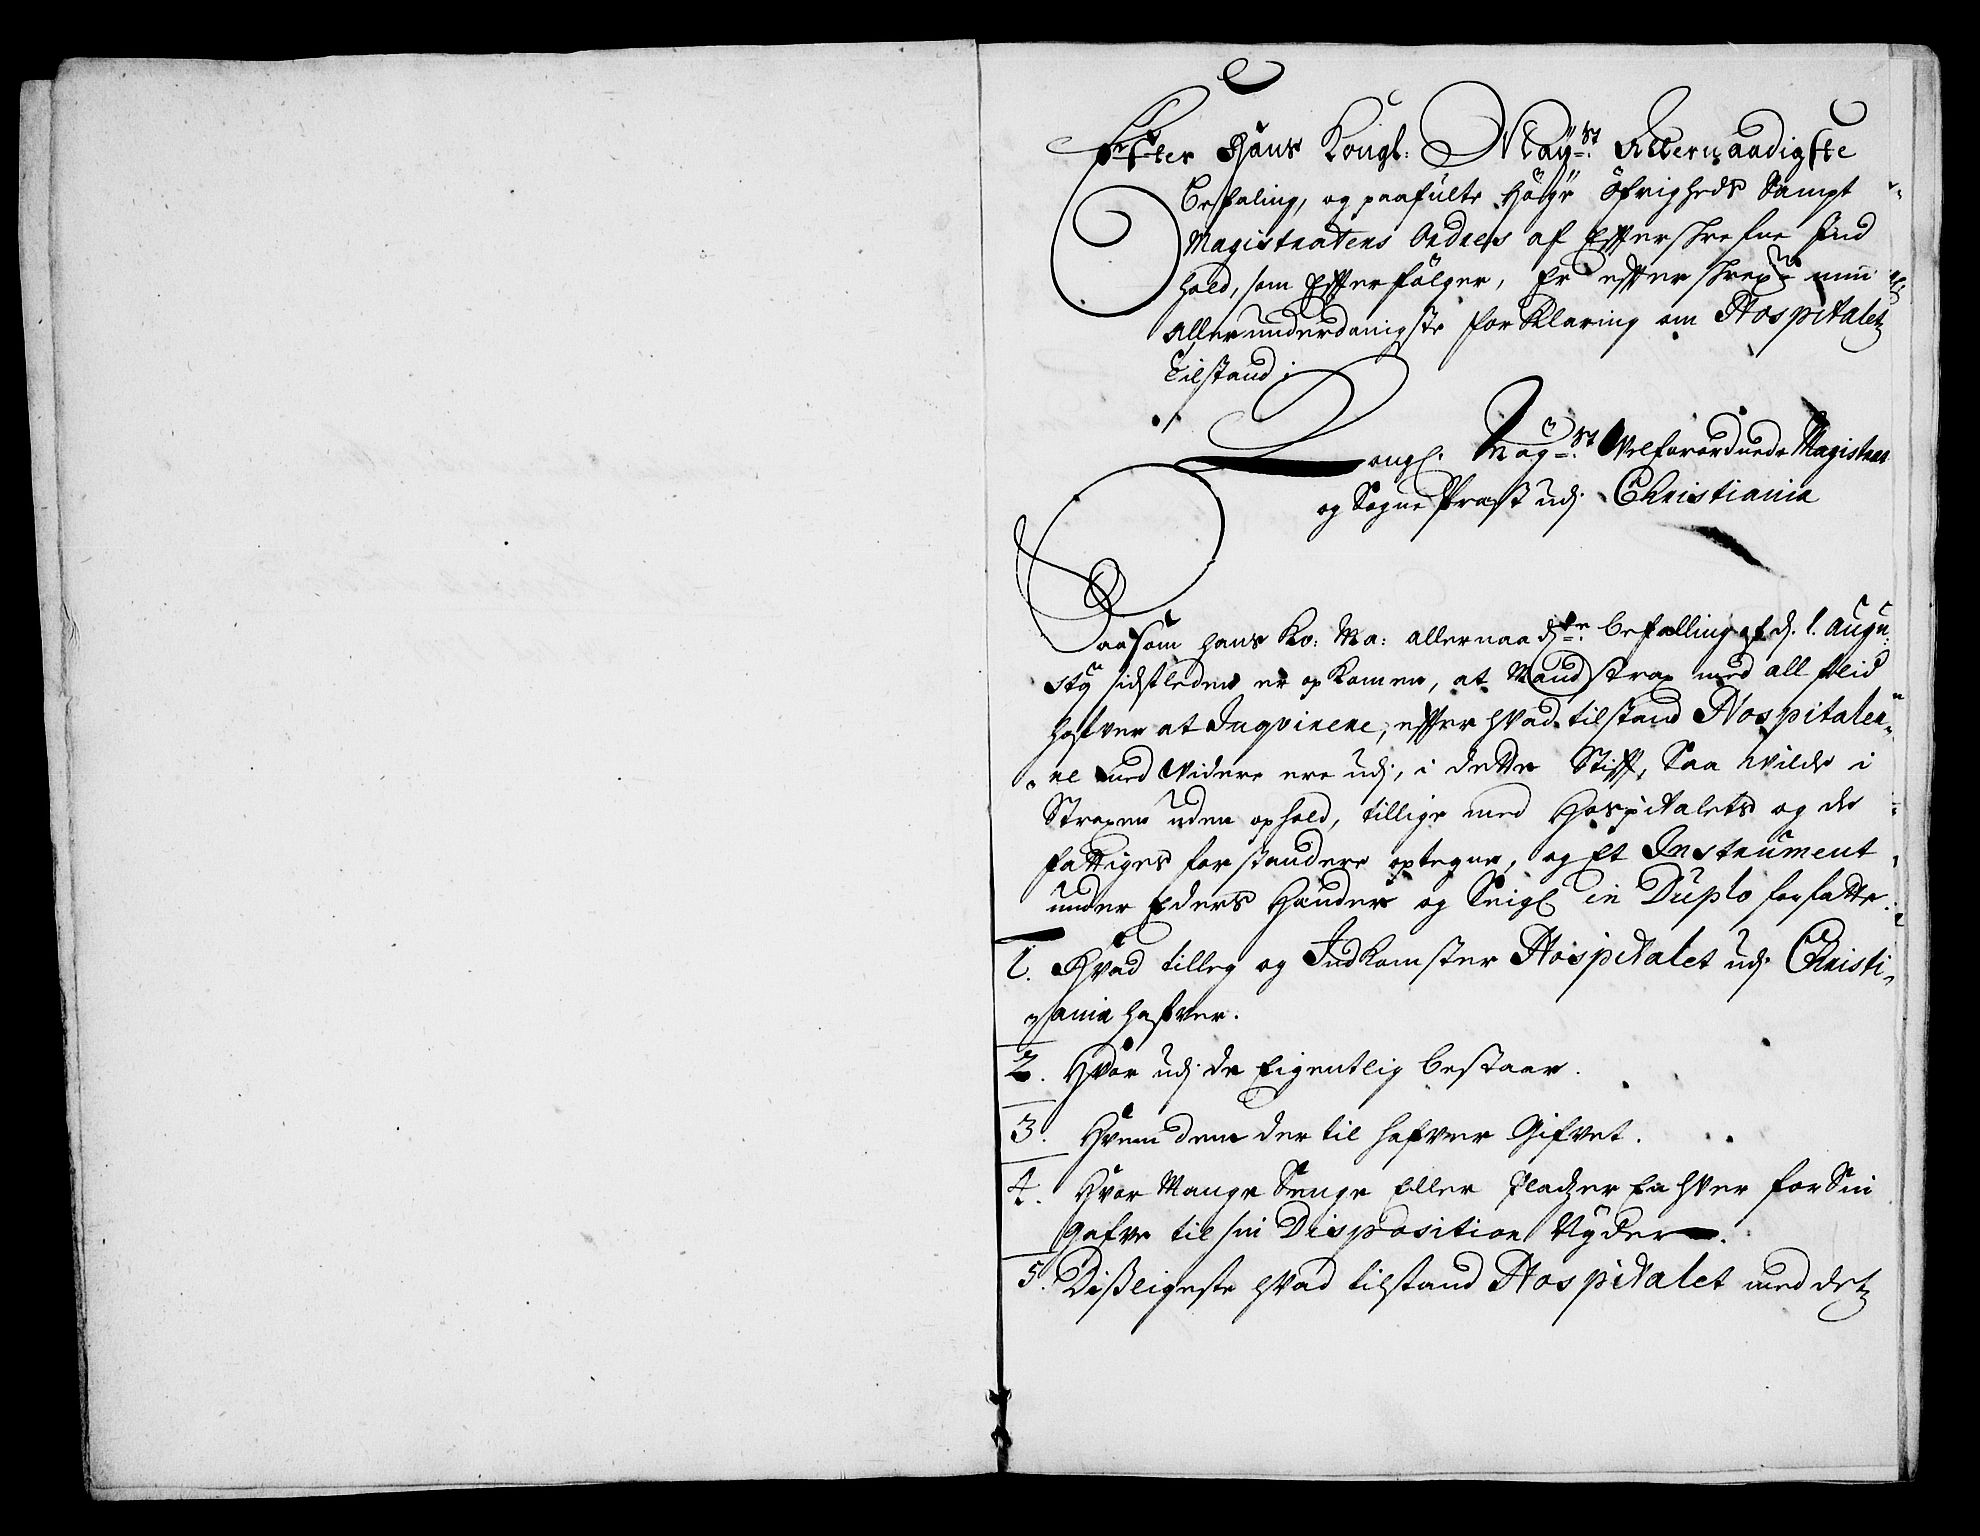 Efter Hans Kongl: Mayst: Allernaadigste
Befaling, og paafulte Høye Øfrigheds Sampt
Magistratens Ordres af Effterskrefne Ind
hold, som Effterfølger, Er effterskrefne min
Allerunderdanigste forklaring om Hospitaletz
Tilstand:
Kongl. Mayst: Velforordnede Magistrat
og Sogne Præst udj Christiania
Saasom hans Ko: Ma: allernaadste: befalling af d. 1. Augu:
sty sidstleden er opkomen, at Mand strax med all flid
hafver at Inqvirere, effter hvad tilstand Hospitaler„
ne med Videre ere udj, i dette Stifft, Saa vilde i
Straxen uden ophold, tillige med Hospitalets og de
fattiges forstandere optegne, og Et Instrument
under Eders Hænder og Seigl in Duplo forfatte:
1. Hvad tilleg og Indkomster Hospitalet udj Christi„
ania hafver.
2. Hvor udj de Eigentlig bestaar.
3. Hvem dem der til hafver Gifvet.
4. Hvor Mange Senge Eller Pladzer En hver for Sin
Gafve til sin Disposition Nyder.
5. Disligeste hvad tilstand Hospitalet med detz